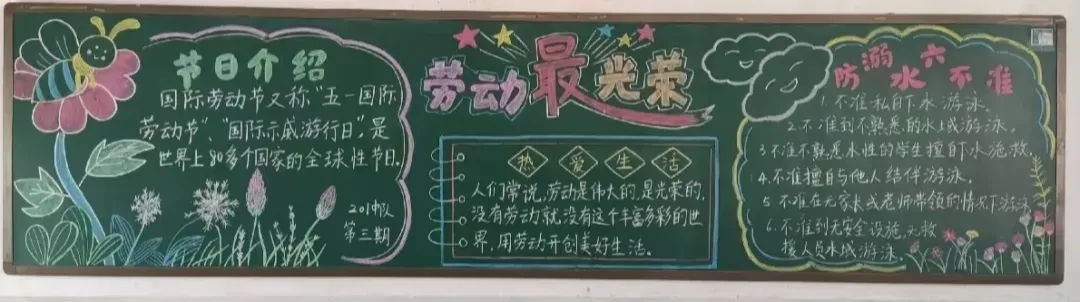 节日介绍
国际劳动节又称“五一国际
劳动节”、“国际示威游行日”,是
世界上80多个国家的全球性节日.
201中队
第三期
劳动最光荣
热爱生活
人们常说,劳动是伟大的,是光荣的,
没有劳动就没有这个丰富多彩的世
界,用劳动开创美好生活。
防溺水六不准
1.不准私自下水游泳.
2.不准到不熟悉的水域游泳.
3.不准不熟悉水性的学生擅自下水施救.
4.不准擅自与他人结伴游泳.
5.不准在无家长或老师带领的情况下游泳
6.不准到无安全设施、无救
援人员水域游泳.